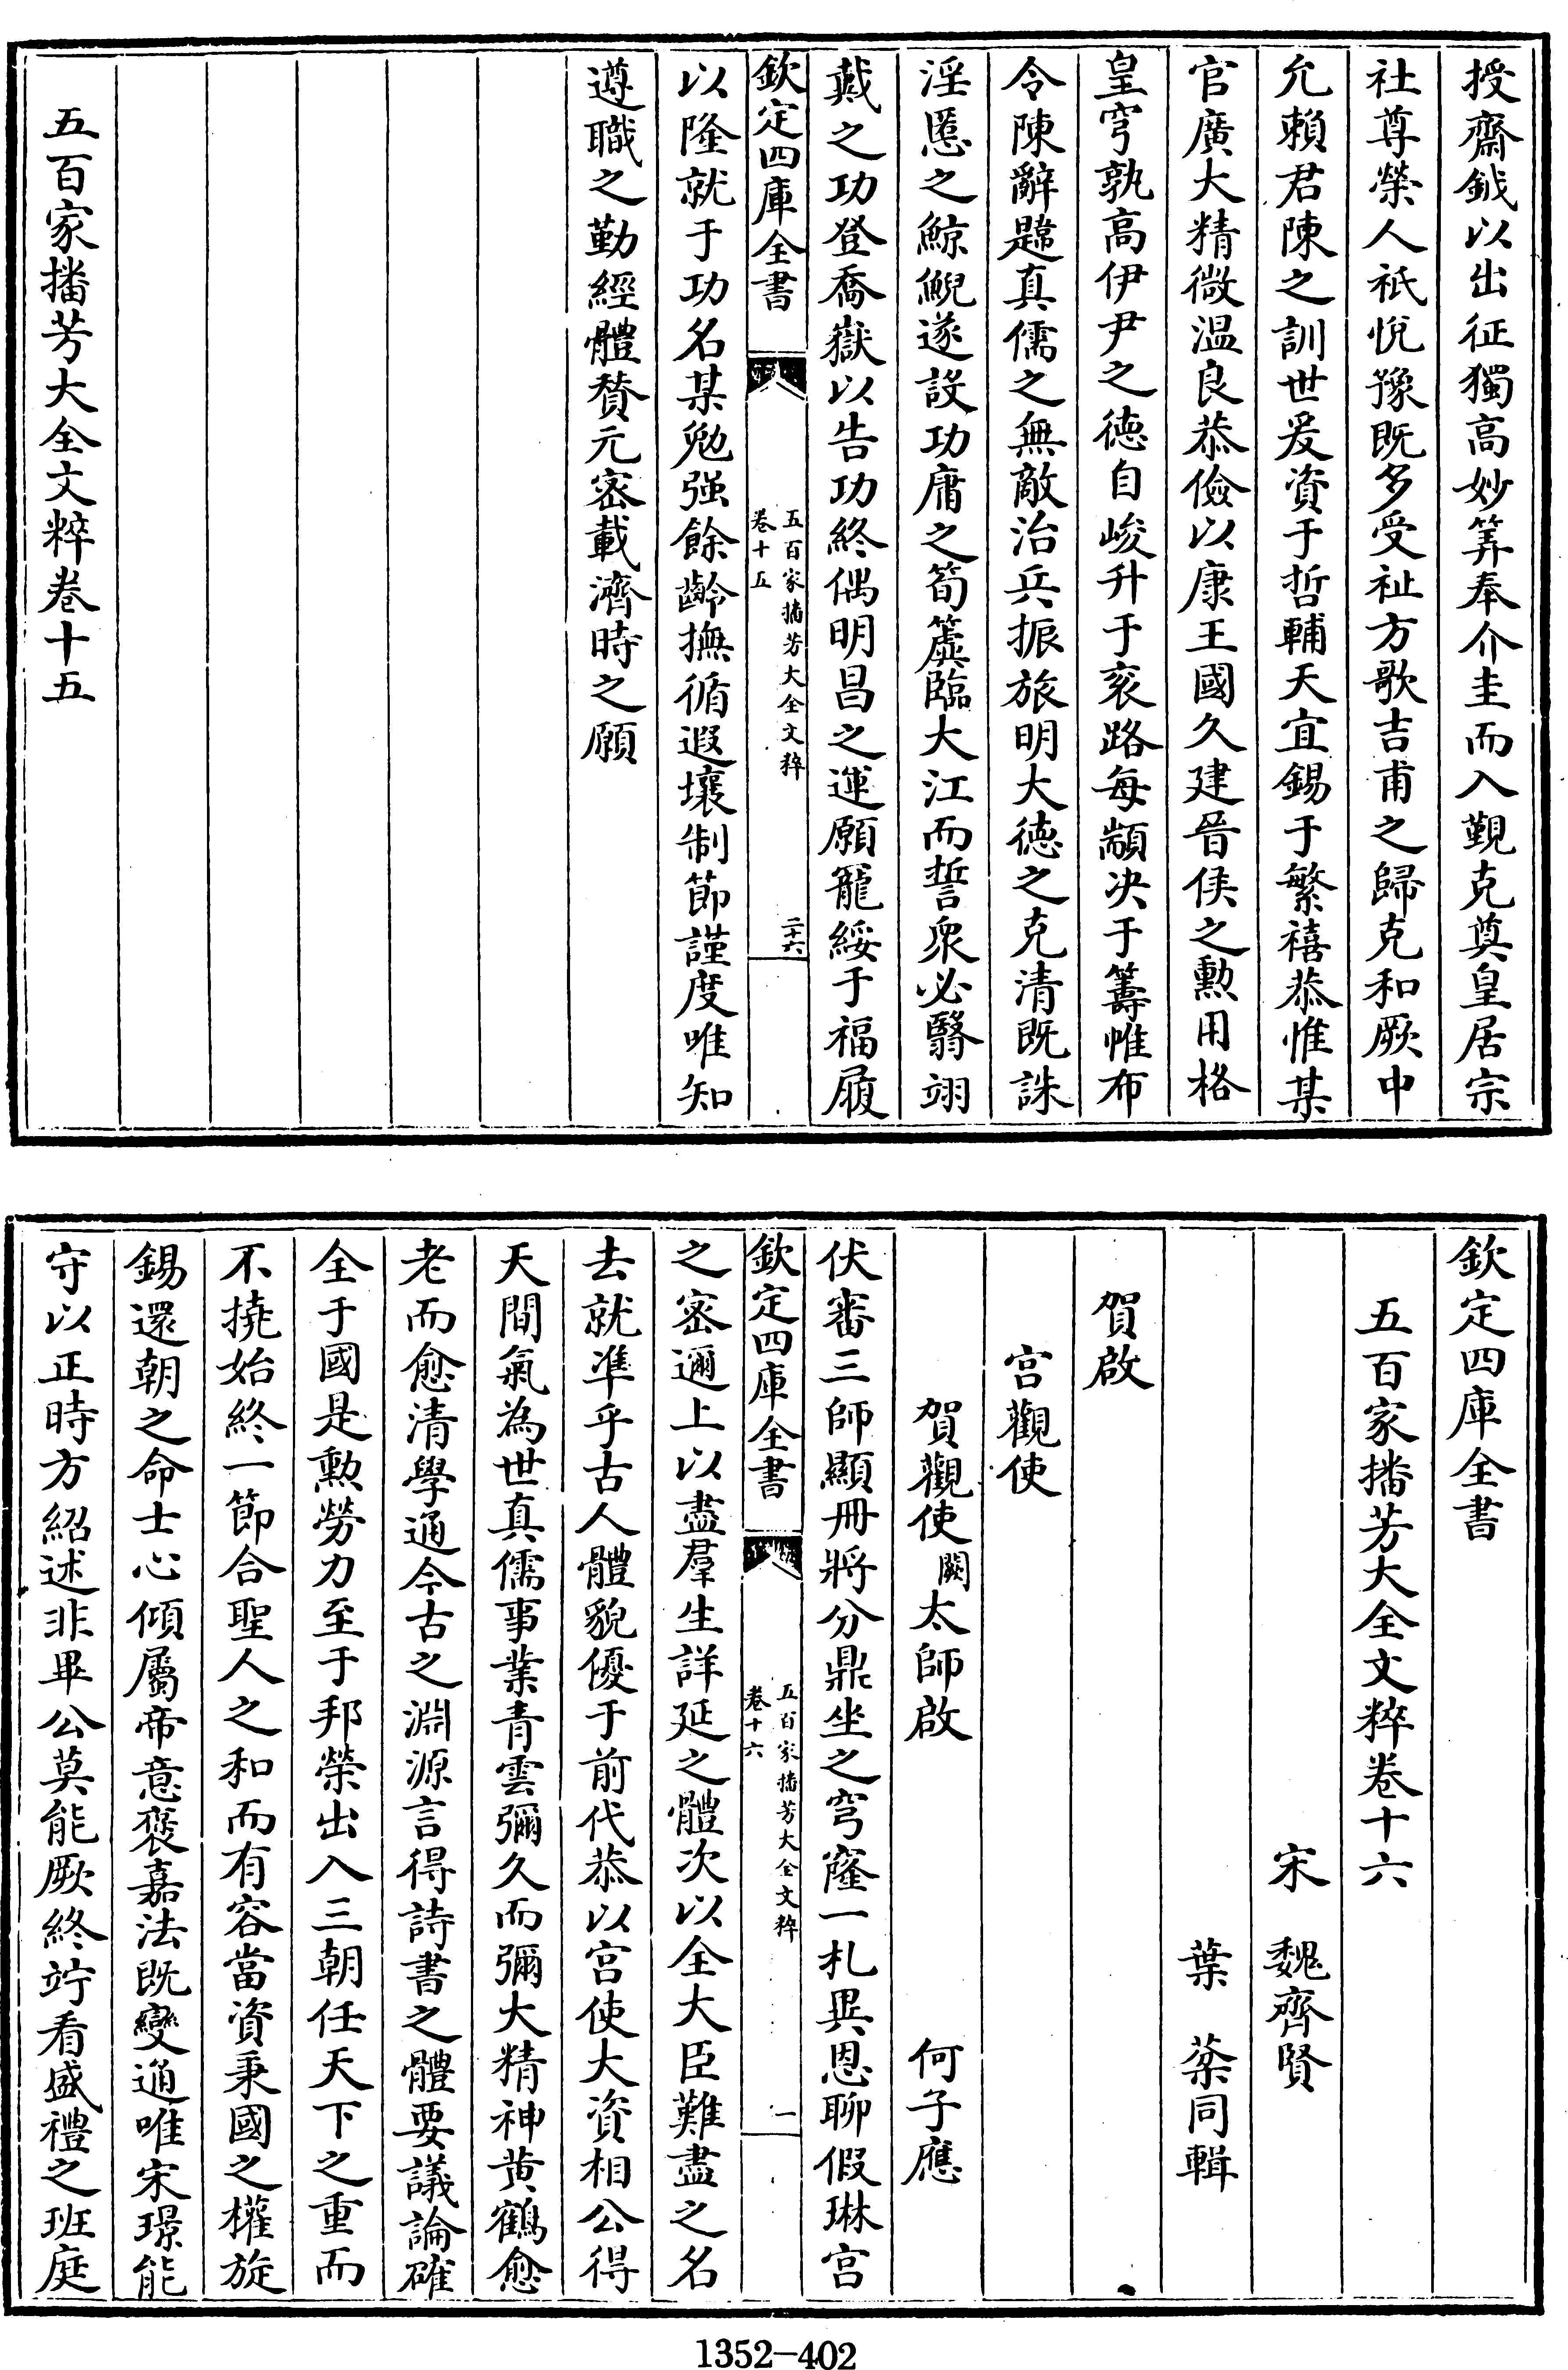 授齋鉞以出征獨高妙筭奉介圭而入覲克奠皇居宗
社尊榮人祇悅豫既多受祉方歌吉甫之歸克和厥中
允賴君陳之訓世爰資于哲輔天宜錫于繁禧恭惟某
官廣大精微温良恭儉以康王國久建晉侯之勲用格
皇穹孰高伊尹之徳自峻升于衮路每顓决于籌帷布
令陳辭韙真儒之無敵治兵振旅明大徳之克清既誅
淫慝之鯨鯢遂設功庸之筍簴臨大江而誓衆必翳翊
戴之功登喬嶽以告功終偶明昌之運願寵綏于福履
欽定四庫全書
五百家播芳大全文粹
卷十五
二十六
以隆就于功名某勉强餘齡撫循遐壤制節謹度唯知
遵職之勤經體賛元宻載濟時之願
五百家播芳大全文粹卷十五
欽定四庫全書
五百家播芳大全文粹卷十六
宋 魏齊賢
葉 棻同輯
賀啟
宫觀使
賀觀使闕太師啟 何子應
伏審三師顯冊將分鼎坐之穹窿一札異恩聊假琳宫
欽定四庫全書
五百家播芳大全文粹
卷十六
一
之宻邇上以盡羣生詳延之體次以全大臣難盡之名
去就凖乎古人體貌優于前代恭以宫使大資相公得
天間氣為世真儒事業青雲彌久而彌大精神黄鶴愈
老而愈清學通今古之淵源言得詩書之體要議論確
全于國是勲勞力至于邦榮出入三朝任天下之重而
不撓始終一節合聖人之和而有容當資秉國之權旋
錫還朝之命士心傾屬帝意褒嘉法既變通唯宋璟能
守以正時方紹述非畢公莫能厥終竚看盛禮之班庭
1352-402